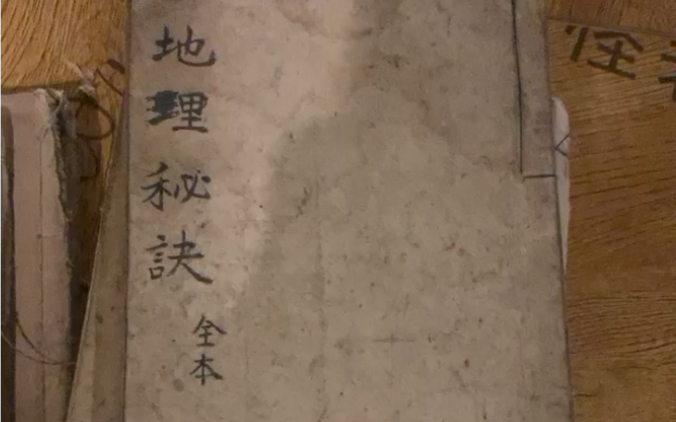 地理秘訣
全本